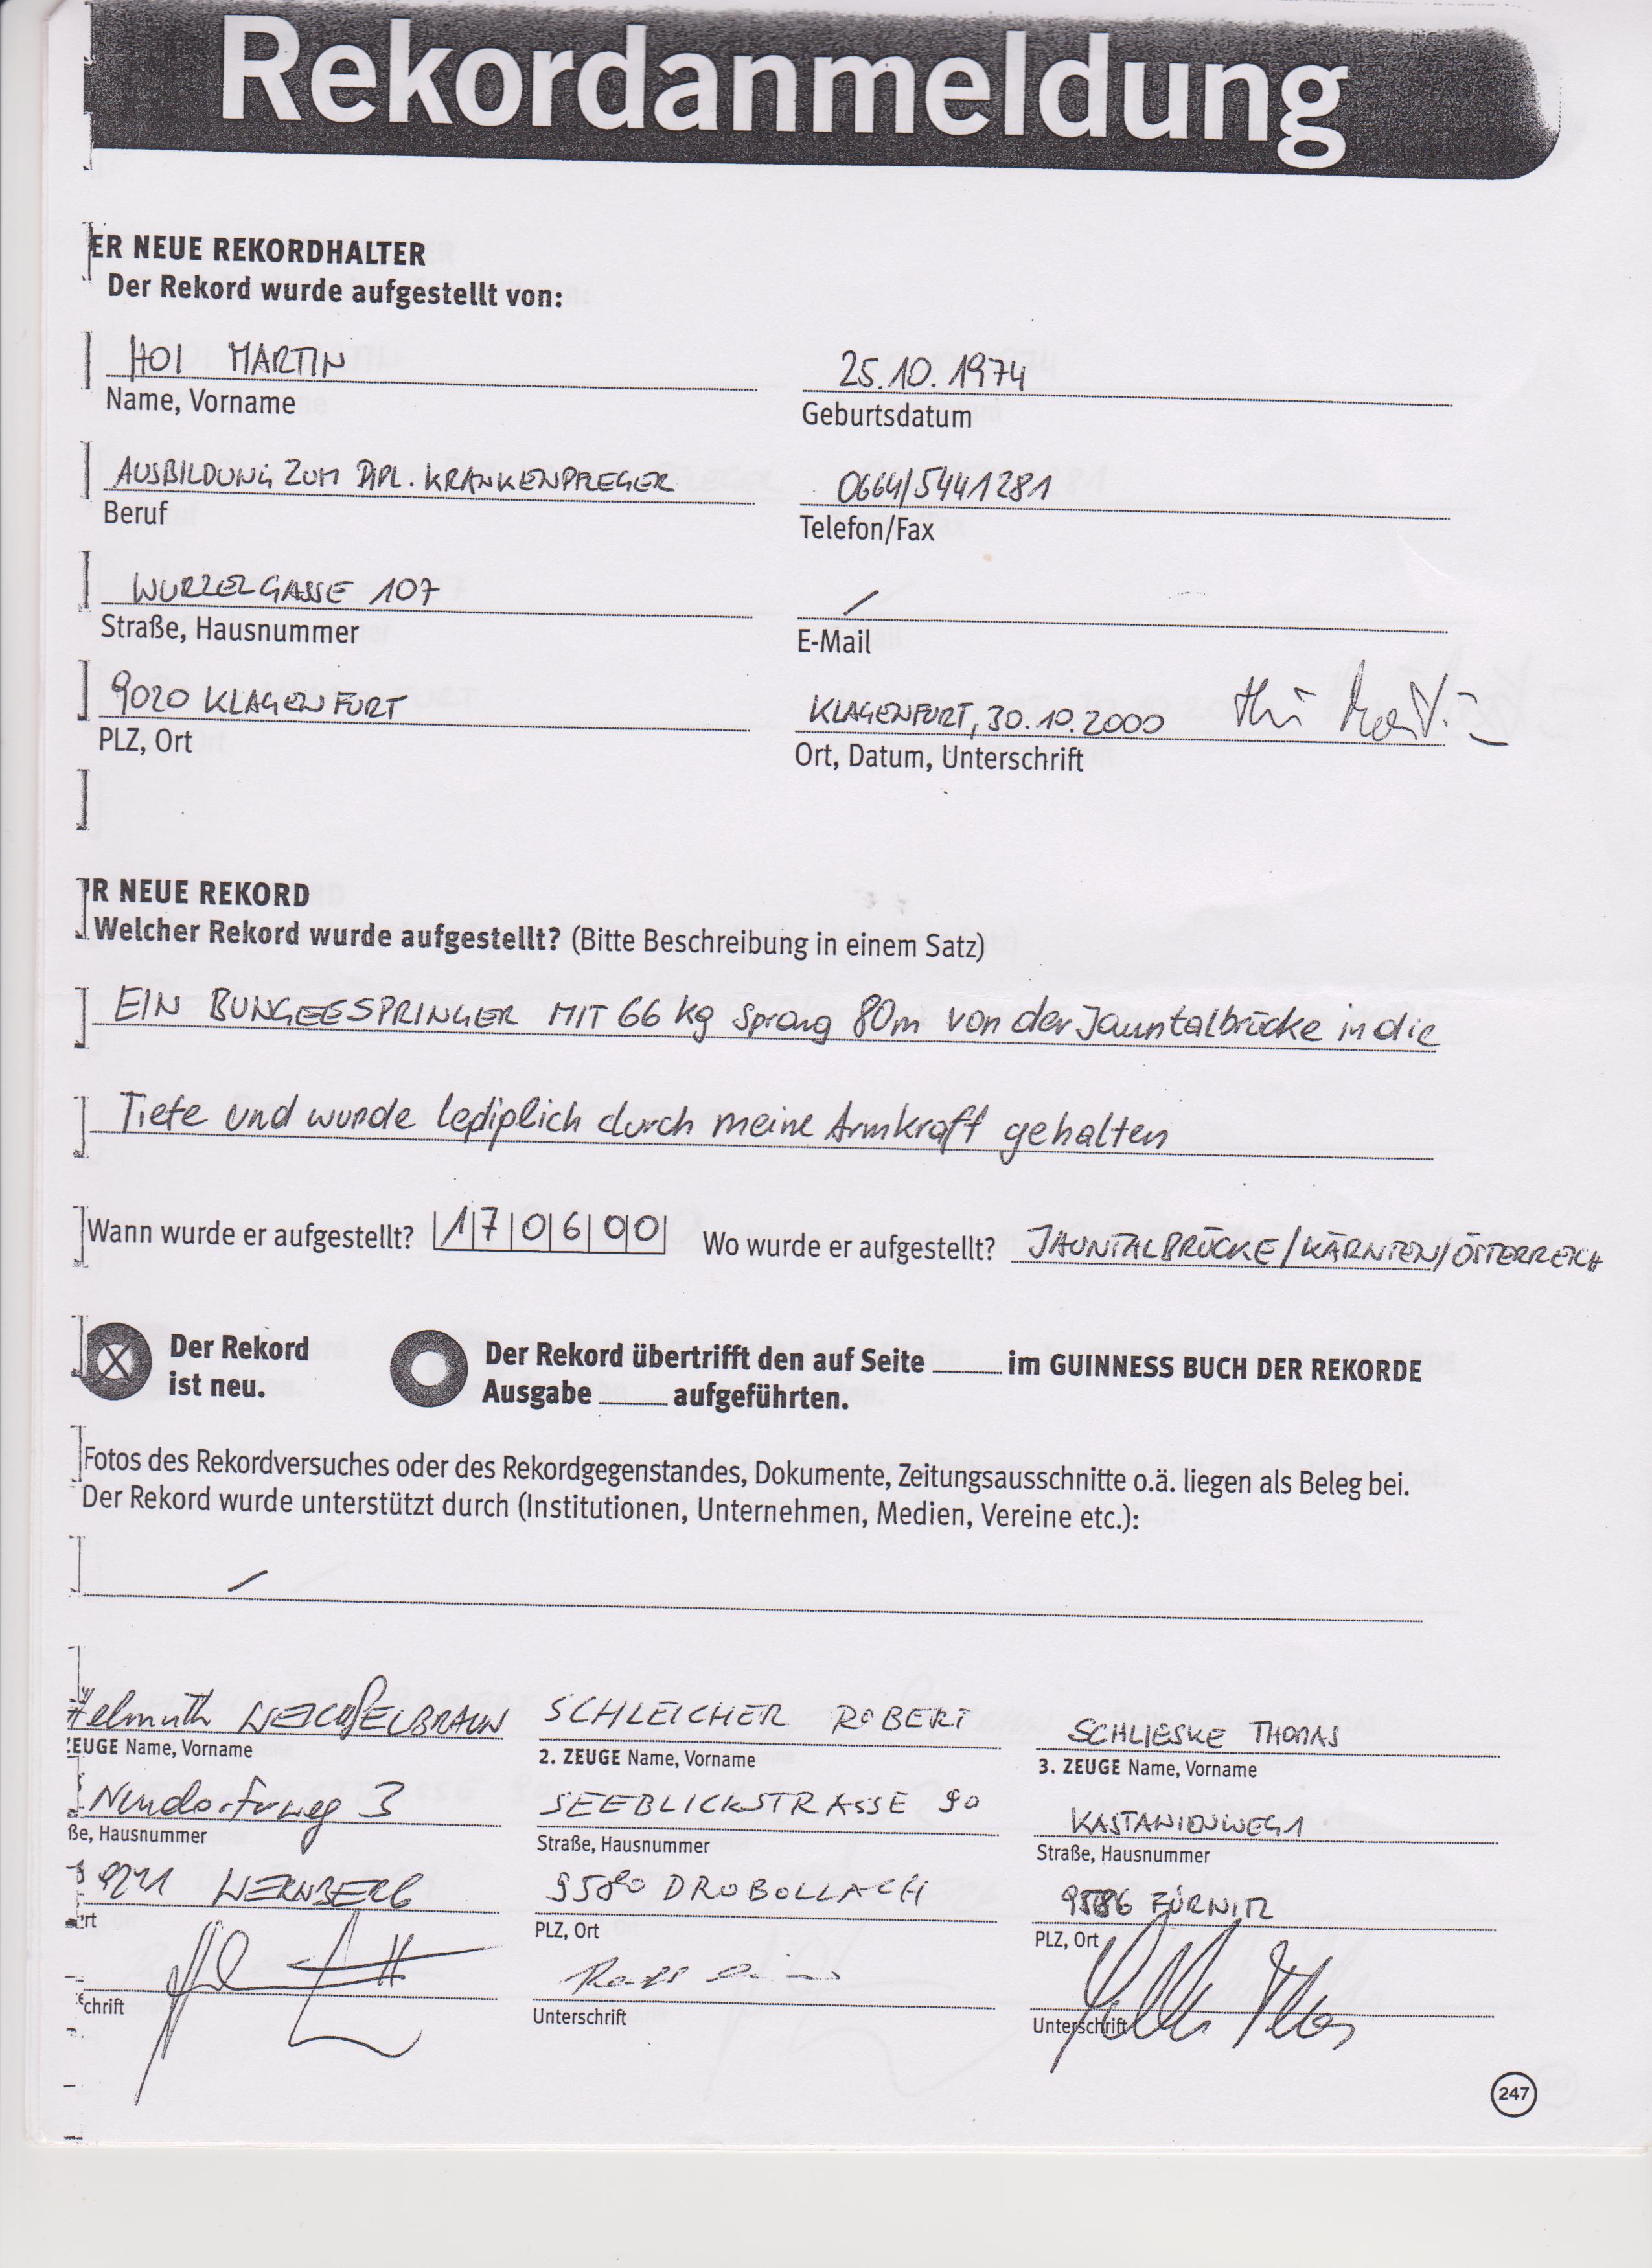 Rekordanmeldung
ER NEUE REKORDHALTER
Der Rekord wurde aufgestellt von:
HOI MARTIN 25.10.1974
Name, Vorname Geburtsdatum
AUSBILDUNG ZUM DIPL. KRANKENPFLEGER 0664/5441281
Beruf Telefon/Fax
WURZELGASSE 107 /
Straße, Hausnummer E-Mail
9020 KLAGENFURT KLAGENFURT, 30.10.2000
PLZ, Ort Ort, Datum, Unterschrift
R NEUE REKORD
Welcher Rekord wurde aufgestellt? (Bitte Beschreibung in einem Satz)
EIN BUNGEESPRINGER MIT 66 kg Sprang 80m von der Jauntalbrücke in die
Tiefe und wurde lediglich durch meine Armkraft gehalten
Wann wurde er aufgestellt? 17 06 00 Wo wurde er aufgestellt? JAUNTALBRÜCKE/KÄRNTEN/ÖSTERREICH
X Der Rekord ist neu. Der Rekord übertrifft den auf Seite ____ im GUINNESS BUCH DER REKORDE
Ausgabe ____ aufgeführten.
Fotos des Rekordversuches oder des Rekordgegenstandes, Dokumente, Zeitungsausschnitte o.ä. liegen als Beleg bei.
Der Rekord wurde unterstützt durch (Institutionen, Unternehmen, Medien, Vereine etc.):
/
Helmuth WEICHSELBRAUN SCHLEICHER ROBERT SCHLIESKE THOMAS
ZEUGE Name, Vorname 2. ZEUGE Name, Vorname 3. ZEUGE Name, Vorname
3 SEEBLICKSTRASSE 90 KASTANIENWEG 1
ße, Hausnummer Straße, Hausnummer Straße, Hausnummer
9241 WERNBERG 9580 DROBOLLACH 9586 FÜRNITZ
rt PLZ, Ort PLZ, Ort
chrift Unterschrift Unterschrift
247